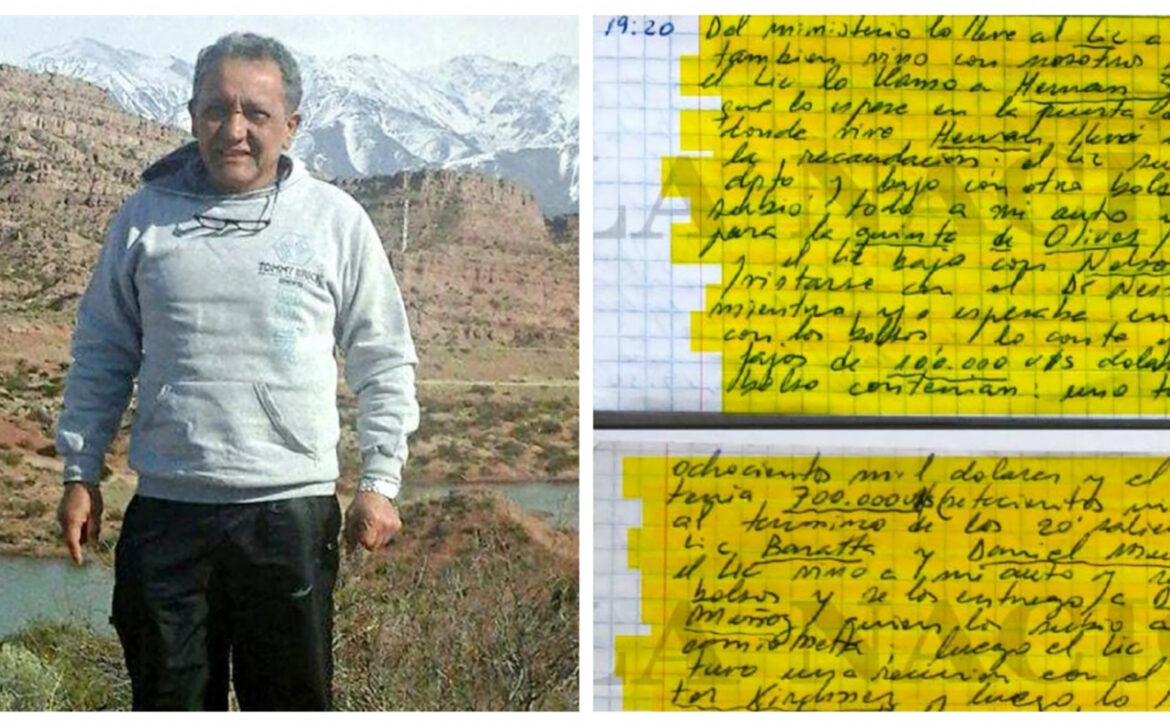 TOMMY
19:20 Del ministerio lo lleve al Lic a
tambien vino con nosotros
el Lic lo llamo a Hernan
que lo espere en la puerta
donde vive Hernan llevó
la recaudación: el Lic
dpto y bajo con otro bols
subió todo a mi auto
para la quinta de Olivos
y el Lic bajo con Nelso
fristarse con el Dr Nes
mientras yo esperaba en
con los bolsos, lo conte
fajos de 100.000 U$S dolar
bolso contenian: uno
LA NACI
ochocientos mil dolares y el
tenia 700.000 U$S (setecientos
al termino de los 20' salie
Lic Baratta y Daniel Mu
el Lic vino a mi auto y
bolsos y se los entrego a D
Muñoz, quien los subio a
camioneta: luego el Lic
tuvo una reunion con el
tor Kirchner y luego lo
LA NACI